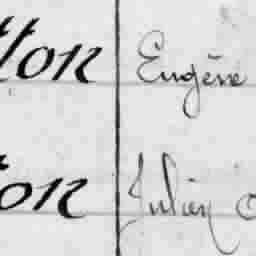 tton Eugène
ton Julien